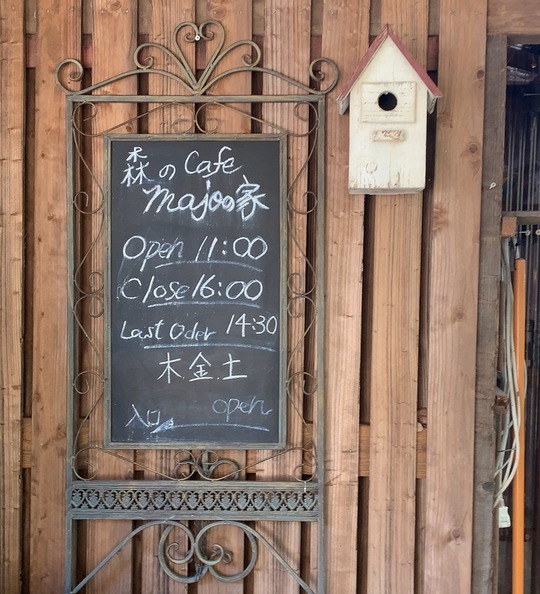 森の Cafe
majoの家
Open 11:00
Close 16:00
Last Oder 14:30
木.金.土
入口 open